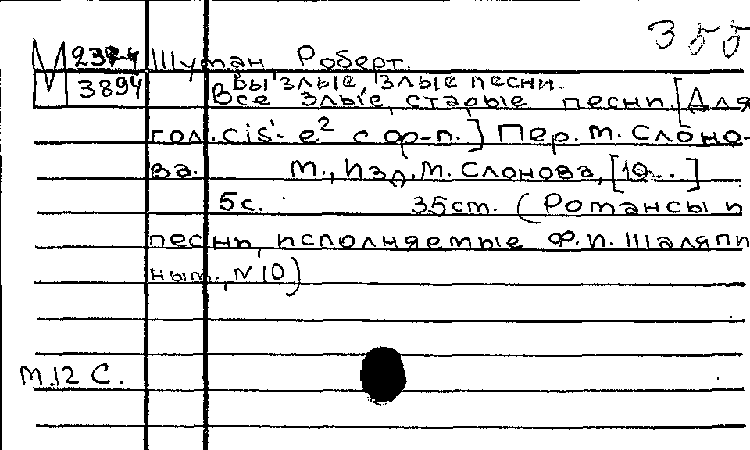 355
М 237-4 Шуман, Роберт.
3894 Вы злые, злые песни.
Все злые, старые песни. [Для
гол. cis'- e² с ф-п.] Пер. М. Слоно-
ва. М., Изд. М. Слонова, [19..]
5с. 35см. (Романсы и
песни, исполняемые Ф.И. Шаляпи-
ным., №10)
М.12 С.